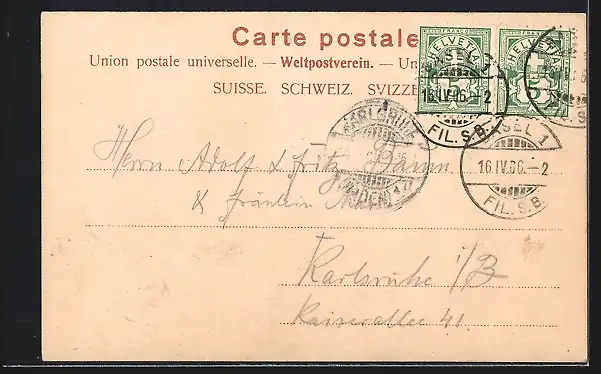 Carte postale
Union postale universelle. — Weltpostverein. — Un
SUISSE. SCHWEIZ. SVIZZE
HELVETIA HELVETIA
5
BASEL 1
16.IV.06.-2
FIL. S.B.
BASEL 1
16.IV.06.-2
FIL. S.B.
KARLSRUHE
(BADEN)
Herrn Adolf & Fritz Damm
& Fräulein
Karlsruhe i/B
Kaiserallee 41.